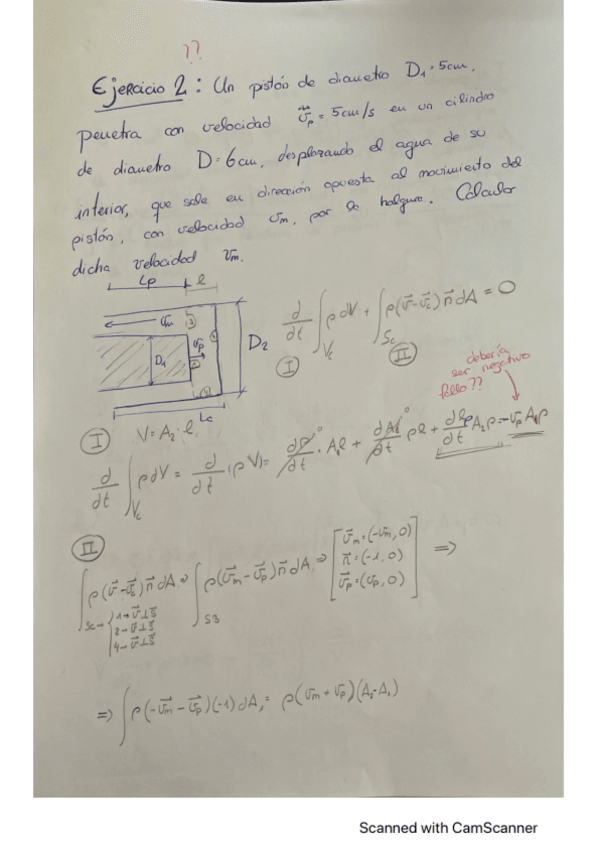 ??
Ejercicio 2: Un pistón de diametro D₁=5cm,
penetra con velocidad v⃗p = 5cm/s en un cilindro
de diametro D=6cm, desplazando el agua de su
interior, que sale en dirección opuesta al movimiento del
pistón, con velocidad vm, por la holgura. Calcular
dicha velocidad vm.
Lp l
vm 3
D₁ vp D₂
Lc
d/dt ∫Vc ρ dV + ∫Sc ρ(v⃗-v⃗c) n⃗ dA = 0
I II
debería
ser negativo
fallo??
I V = A₂·l
d/dt ∫Vc ρdV = d/dt (ρV) = dρ/dt · A₂l + dA₂/dt ρl + dlp/dt A₂ρ = -vp A₂ρ
II
∫Sc ρ(v⃗-v⃗c) n⃗ dA ⇒ ∫S3 ρ(v⃗m-v⃗p) n⃗ dA ⇒ [v⃗m=(-vm,0) n⃗=(-1,0) v⃗p=(vp,0)] ⇒
Sc→ {1→v⃗⊥s⃗
2→v⃗⊥s⃗
4→v⃗⊥s⃗
⇒ ∫ρ(-v⃗m-v⃗p)(-1)dA = ρ(vm+vp)(A₂-A₁)
Scanned with CamScanner